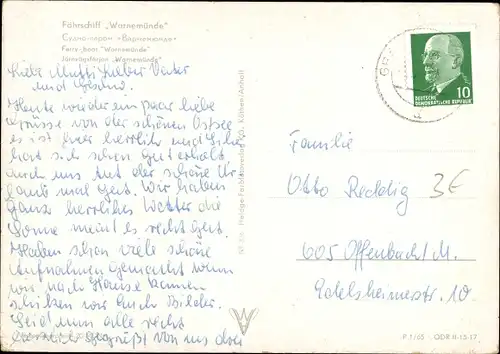 Fährschiff „Warnemünde"
Судно-паром «Варнемюнде»
Ferry-boat "Warnemünde"
Järnvägsfärjan „Warnemünde"
Liebe Mutti Lieber Vater
und
Heute wieder ein paar liebe
Grüsse von der schönen Ostsee
es ist hier herrlich und
hat sich schon gut erholt
durch uns tut der schöne Ur
laub mal gut. Wir haben
ganz herrliches Wetter die
Sonne meint es recht gut.
Haben schon viele schöne
Aufnahmen gemacht wenn
wir nach Hause kommen
schicken wir Euch Bilder.
Seid nun alle recht
herzlich gegrüßt von uns drei
Heldge-Farbfotoverlag KG, Köthen/Anhalt
DEUTSCHE
DEMOKRATISCHE REPUBLIK
10
Familie
Otto Reddig
3€
605 Offenbach M.
10
P 1/65 DDR II-15-17